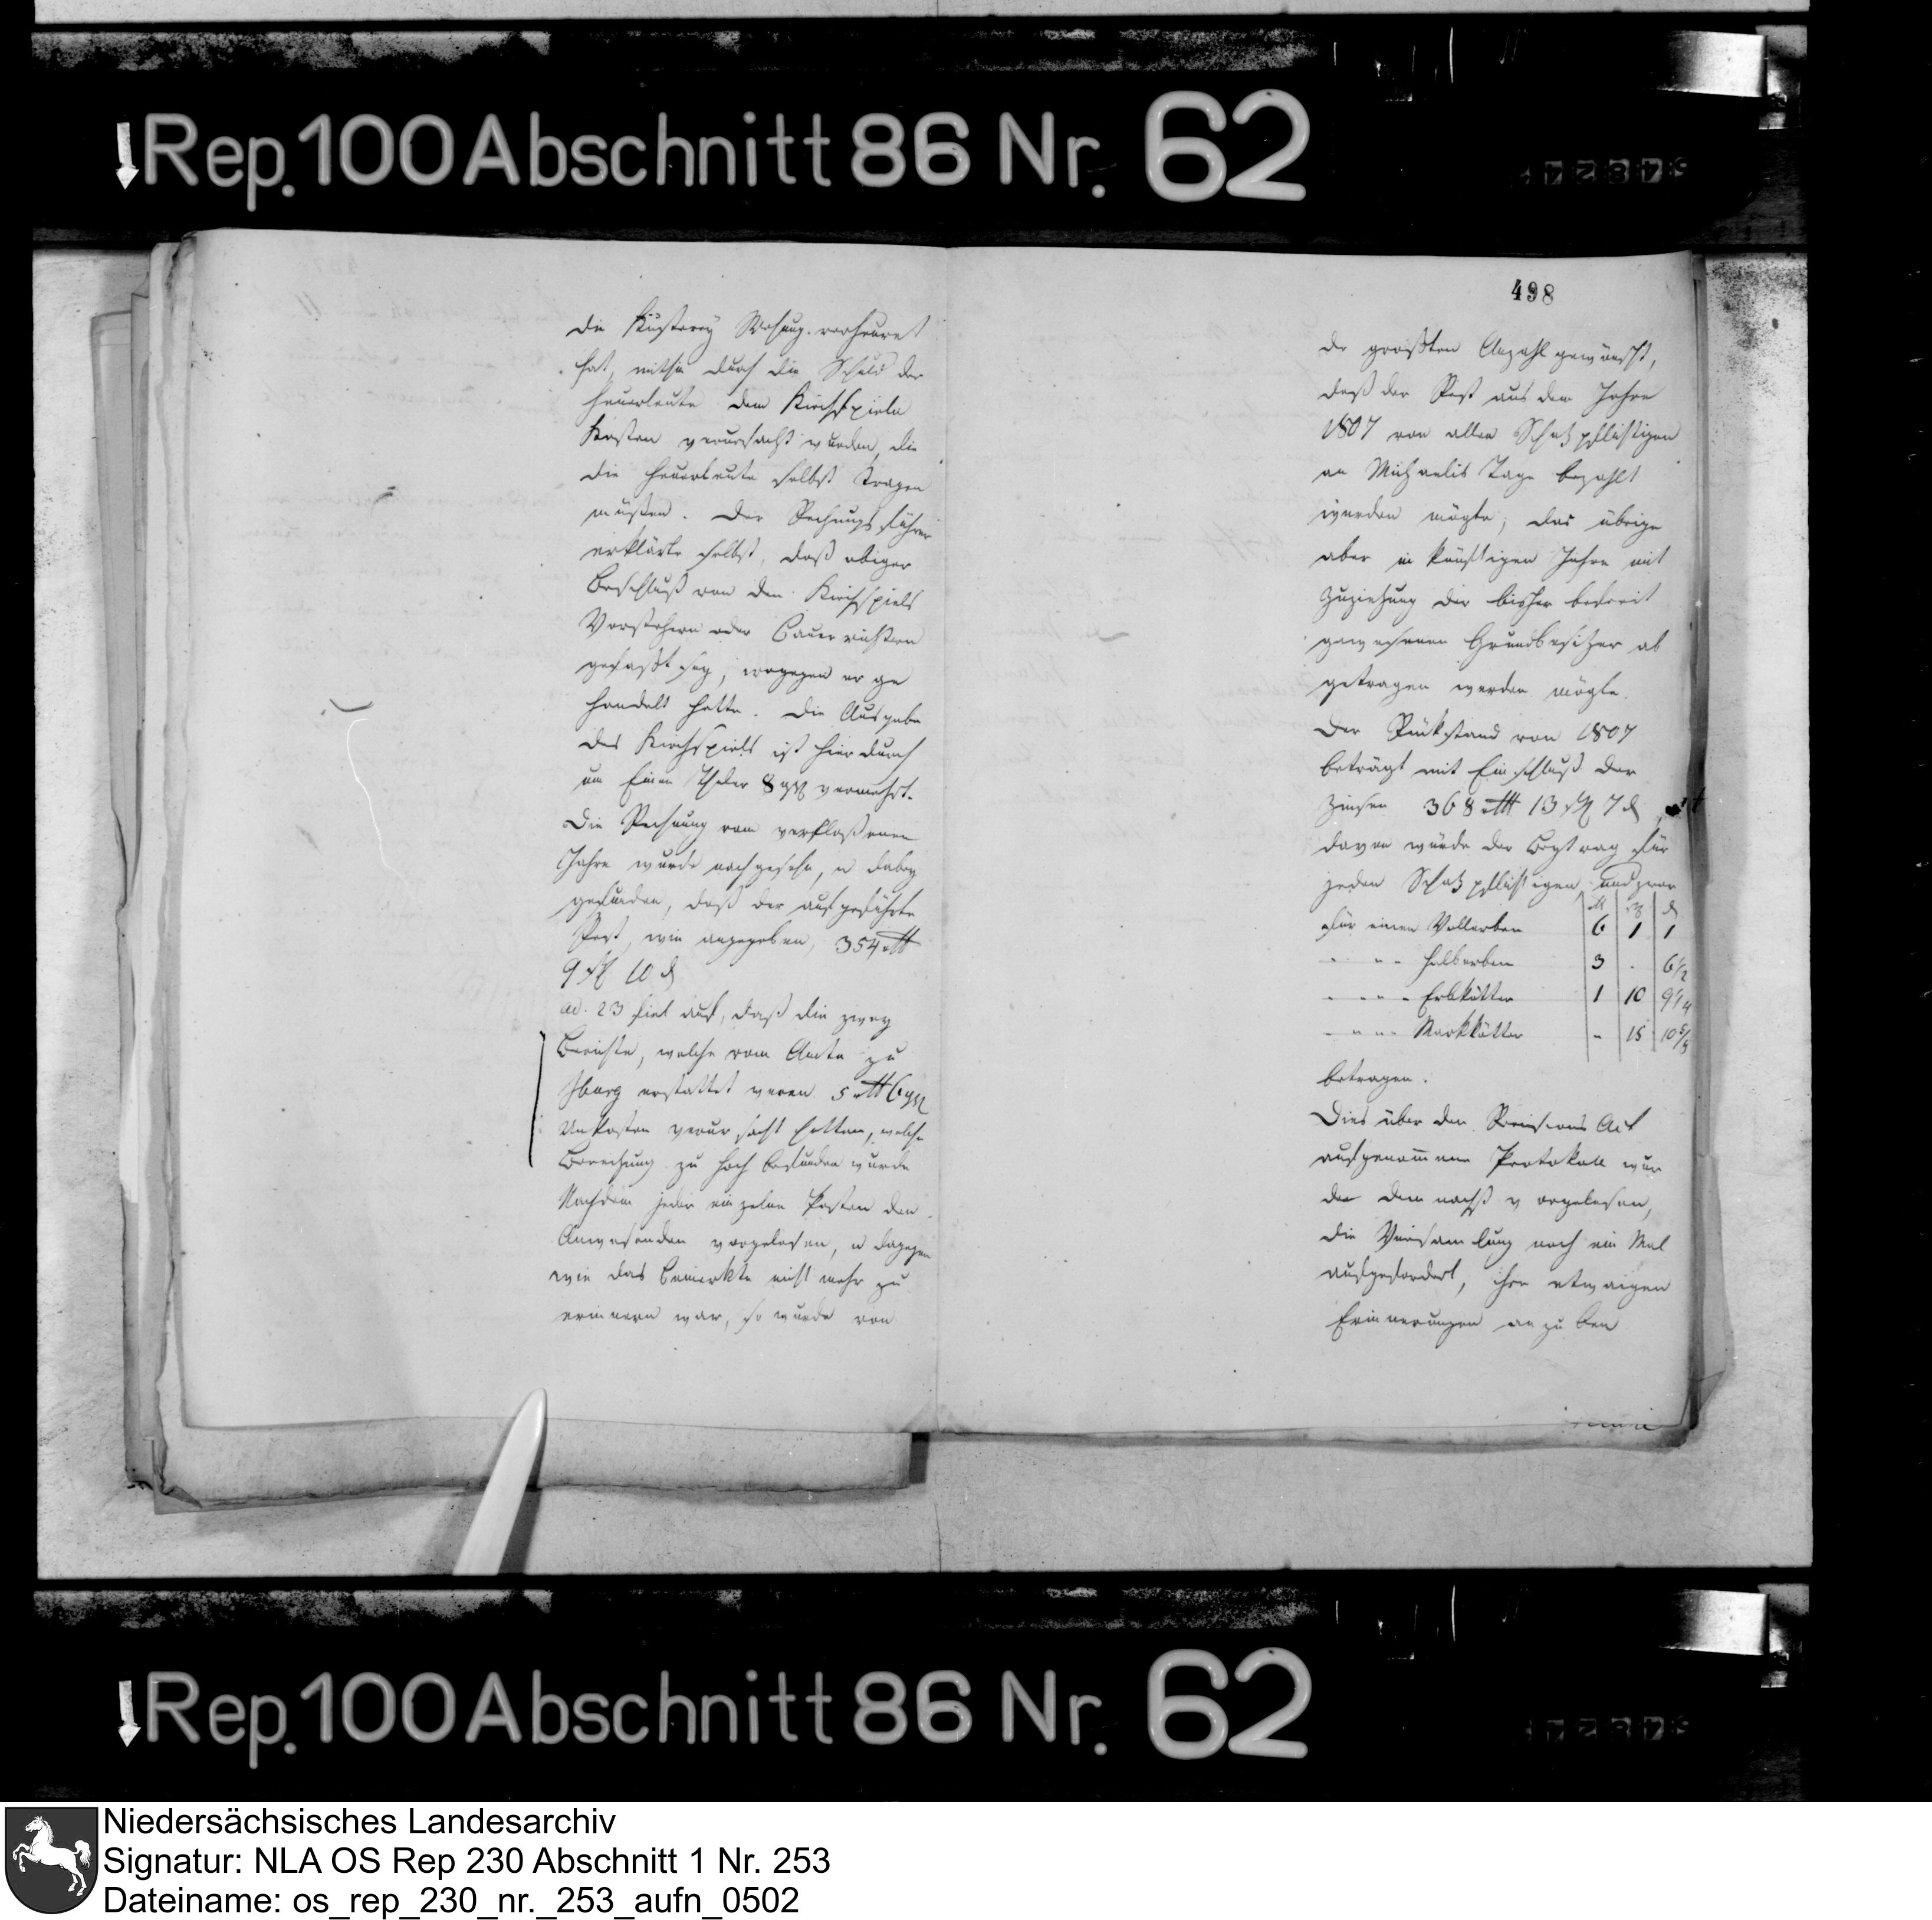 Rep. 100 Abschnitt 86 Nr. 62
die Küsterey Wohnung verheuret
hat, mithin durch die Schuld der
Heuerleute dem Kirchspiele
Kosten verursacht wurden, die
die Heuerleute selbst tragen
müßten. Der Rechnungsführer
erklärte selbst, daß obiger
Beschluß von den Kirchspiels
Vorstehern oder Bauerrichtern
gefaßt sey, wogegen er ge
handelt hatte. Die Ausgabe
des Kirchspiels ist hierdurch
um Einen Thaler 8 ggl vermehrt.
Die Rechnung vom verfloßenen
Jahre wurde nachgesehn, u dabey
gefunden, daß der aufgeführte
Rest, wie angegeben, 354 rtl
9 ßl 10 d
ad. 23 fiel auf, daß die zwey
Berichte, welche vom Amte zu
Iburg erstattet waren 5 rtl 6 ggl
Unkosten verursacht hatten, welche
Berechnung zu hoch befunden wurde
Nachdem jeder einzelne Posten den
Anwesenden vorgelesen, u dagegen
wie das Bemerkte nicht mehr zu
erinnern war, so wurde von
498
der größten Anzahl gewünscht,
daß der Rest aus dem Jahre
1807 von allen Schatzpflichtigen
an Michaelis Tage bezahlt
werden mögte; das übrige
aber in künftigen Jahre mit
Zuziehung der bisher befreit
gewesenen Grundbesitzer ab
getragen werden mögte.
Der Rükstand von 1807
beträgt mit Einschluß der
Zinsen 368 rtl 13 ßl 7 d
davon würde der Beytrag für
jeden Schatzpflichtigen und zwar
rtl ßl d
für einen Vollerben 6 1 1
" " - Halberben 3 - 6 1/2
" " " - Erbkötter 1 10 9 1/4
- " " " Markkötter - 15 10 5/8
betragen.
Dies über den Revisions Act
aufgenommene Protokoll wur
de demnächst vorgelesen,
die Versamlung noch ein Mal
aufgefordert, ihre etwaigen
Erinnerungen anzuben
Rep. 100 Abschnitt 86 Nr. 62
Niedersächsisches Landesarchiv
Signatur: NLA OS Rep 230 Abschnitt 1 Nr. 253
Dateiname: os_rep_230_nr._253_aufn_0502